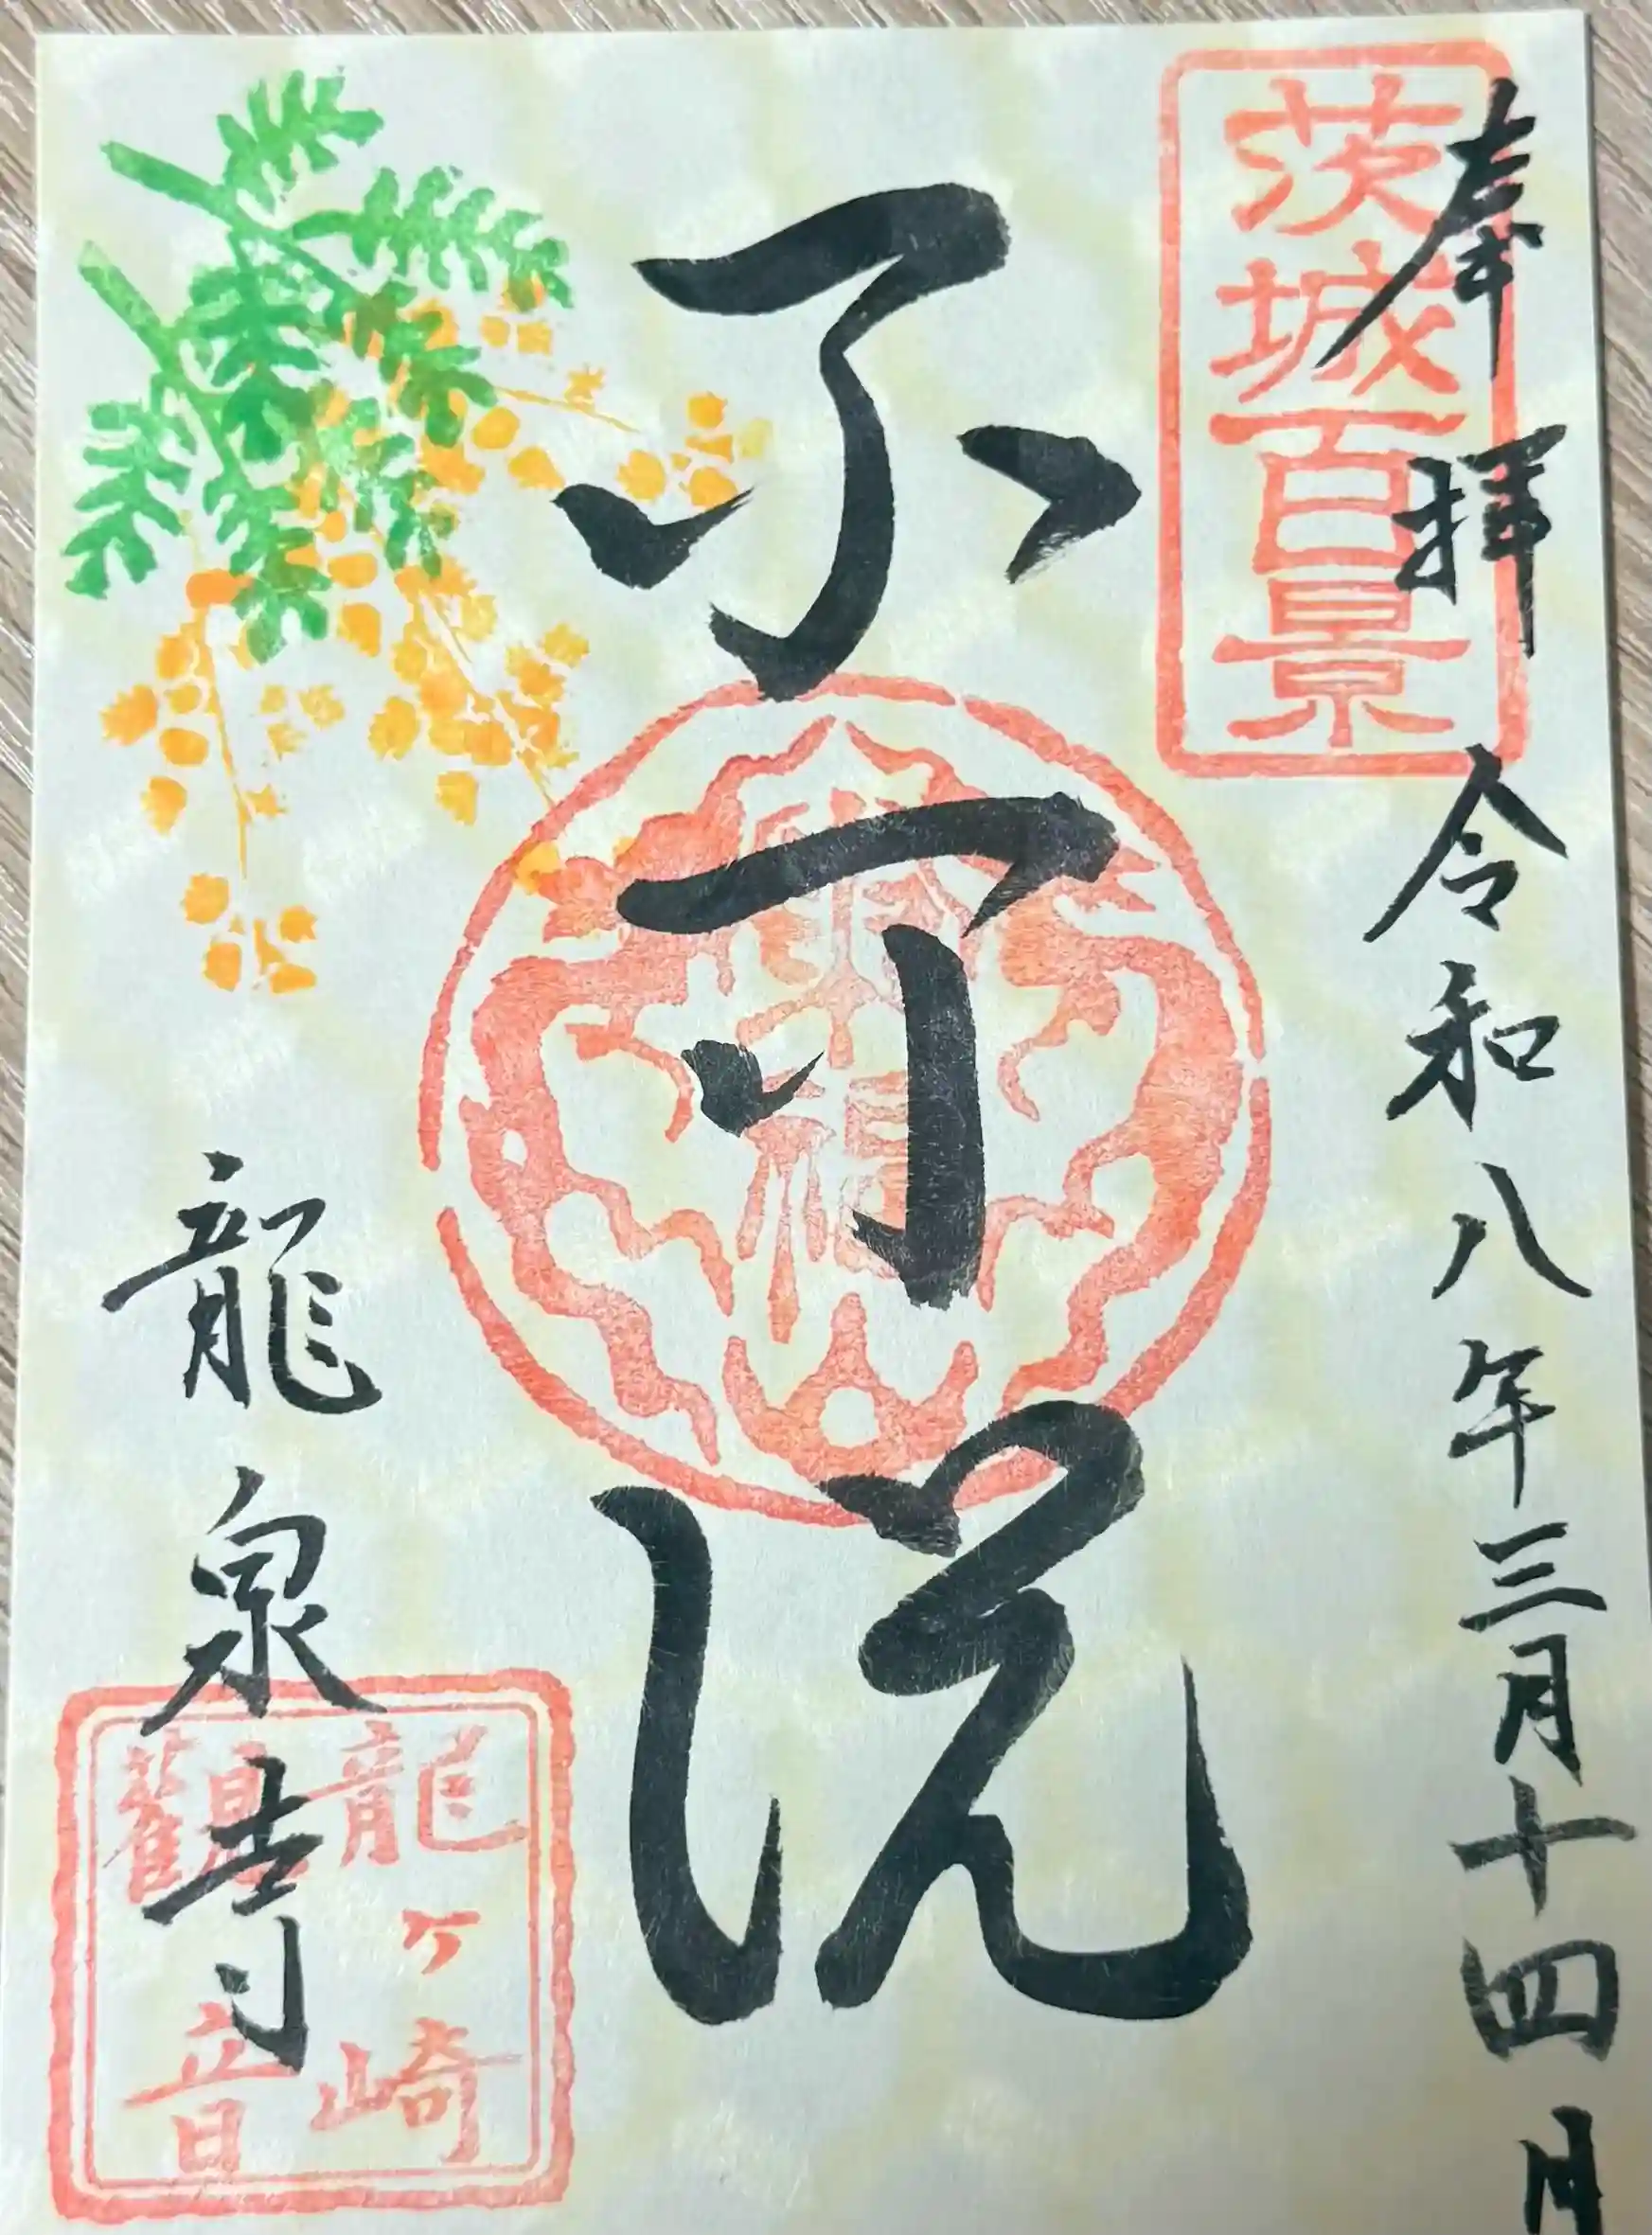 茨城百景
奉拝 令和八年三月十四日
不可説
龍泉寺
龍ヶ崎
觀音